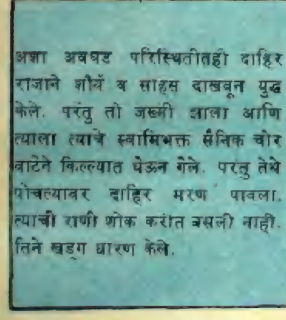 अशा अवघड परिस्थितीतही दाहिर
राजाने शौर्य व साहस दाखवून युद्ध
केले. परंतु तो जखमी झाला आणि
त्याला त्याचे स्वामिभक्त सैनिक चोर
वाटेने किल्ल्यात घेऊन गेले. परतु तेथे
पोचल्यावर दाहिर मरण पावला.
त्याची राणी शोक करीत बसली नाही.
तिने खड्ग धारण केले.